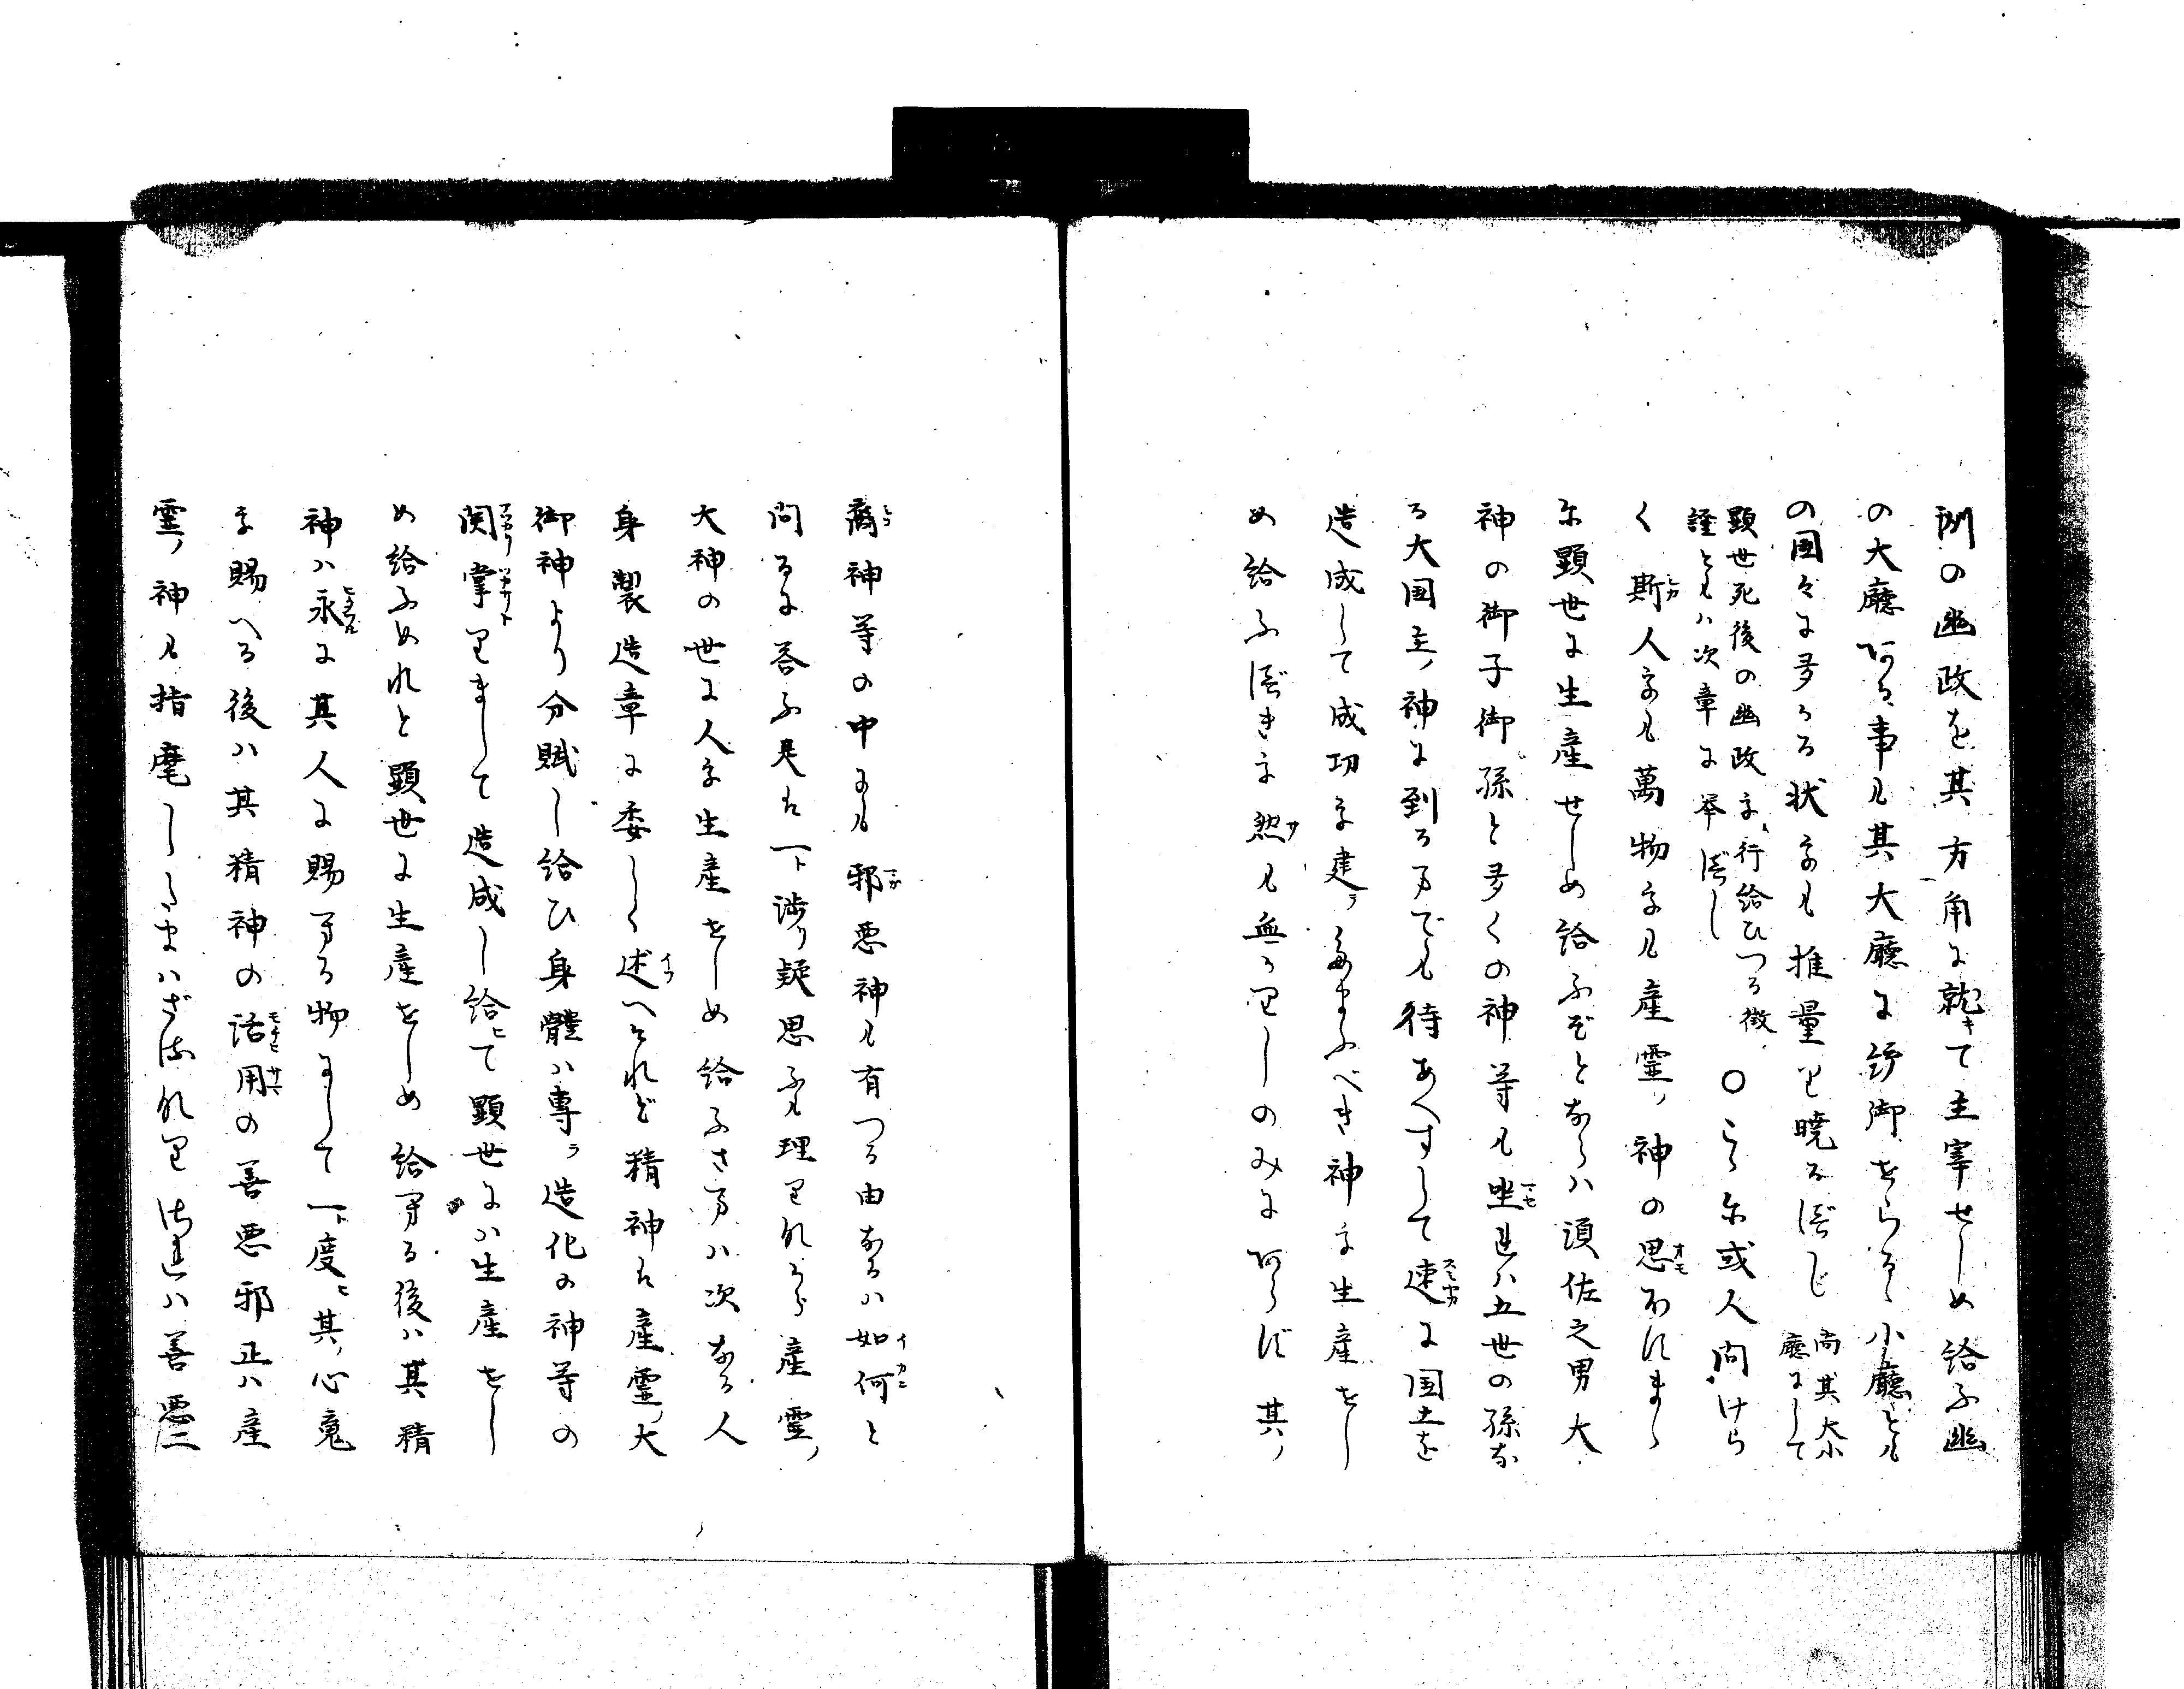 州の幽政を其方角に就キて主宰せしめ給ふ幽
の大廳ある事も其大廳に統御せらるゝ小廳ども
の国々に多かる状をも推量り暁るべし尚其大小廳にして
顕世死後の幽政を行給ひつる徴、
證ともハ次章に挙べし
〇こゝに或人問けら
く斯人をも萬物をも産霊ノ神の思ほすまゝ
に顕世に生産せしめ給ふぞとならハ須佐之男大
神の御子御孫と多くの神等も坐まれハ五世の孫な
る大国主ノ神に到るまでも待あへずして速に国土を
造成して成功を建ラたまふべき神を生産せし
め給ふべきを然も無かりしのみにあらず其ノ
裔神等の中にも邪悪神も有つる由なるハ如何と
問るに答ふ是は一ト渉り疑思ふも理りながら産霊ノ
大神の世に人を生産せしめ給ふさまハ次なる人
身製造章に委しく述へれど精神は産霊ノ大
御神より分賦し給ひ身體ハ専ラ造化の神等の
関掌りまして造成し給ヒて顕世にハ生産せし
め給ふめれと顕世に生産せしめ給へる後ハ其精
神ハ永に其人に賜へる物にして一ト度ヒ其ノ心魂
を賜へる後ハ其精神の活用の善悪邪正ハ産
霊ノ神も指麾したまハざるなりされハ善悪二